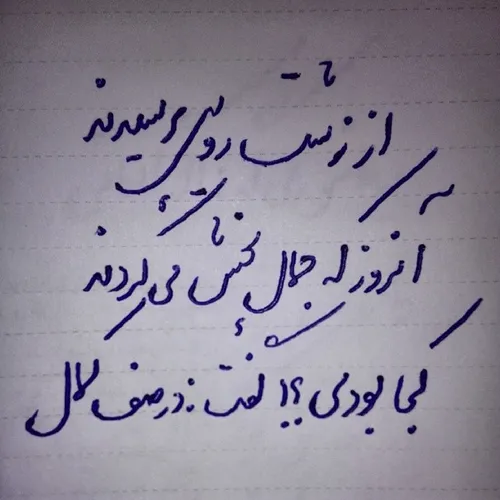 از زشت رویی پرسیدند
آنروز که جمال پخش می کردند
کجا بودی؟! گفت: در صف کمال